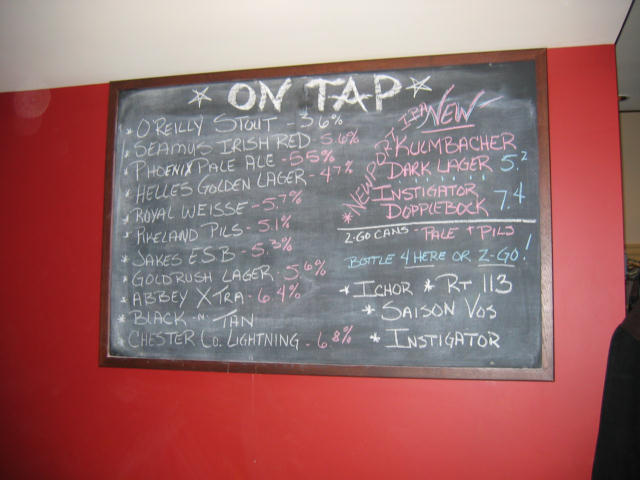 * ON TAP *
* O'REILLY STOUT - 3.6%
* SEAMUS IRISH RED 5.6%
* PHOENIX PALE ALE - 5.5%
* HELLES GOLDEN LAGER - 4.7%
* ROYAL WEISSE - 5.7%
* PIKELAND PILS - 5.1%
* JAKES ESB - 5.3%
* GOLDRUSH LAGER - 5.6%
* ABBEY XTRA - 6.4%
* BLACK -N- TAN
* CHESTER CO. LIGHTNING - 6.8%
* NEWPORT IPA
NEW
KULMBACHER
DARK LAGER 5.2
INSTIGATOR
DOPPLEBOCK 7.4
2-GO CANS - PALE + PILS
BOTTLE 4 HERE OR 2-GO!
* ICHOR * RT 113
* SAISON VOS
* INSTIGATOR